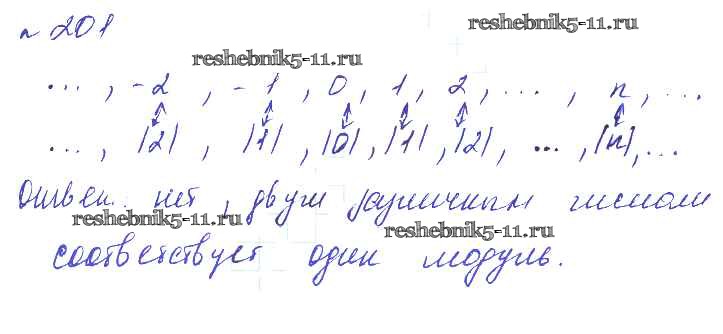 № 201
reshebnik5-11.ru
reshebnik5-11.ru
..., -2, -1, 0, 1, 2, ..., n, ...
↕ ↕ ↕ ↕ ↕ ↕
..., |2|, |1|, |0|, |1|, |2|, ..., |n|, ...
Ответ: нет, двум различным числам
reshebnik5-11.ru
reshebnik5-11.ru
соответствует один модуль.